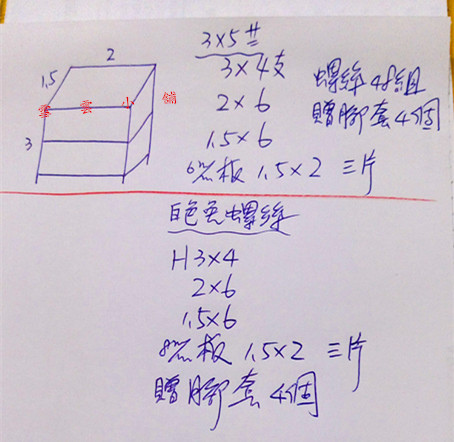 2
1.5
3
雲 小 舖
3×5
3×4支
2×6
1.5×6
板 1.5×2 三片
螺絲48組
贈腳套4個
白色 螺絲
H3×4
2×6
1.5×6
板 1.5×2 三片
贈腳套4個